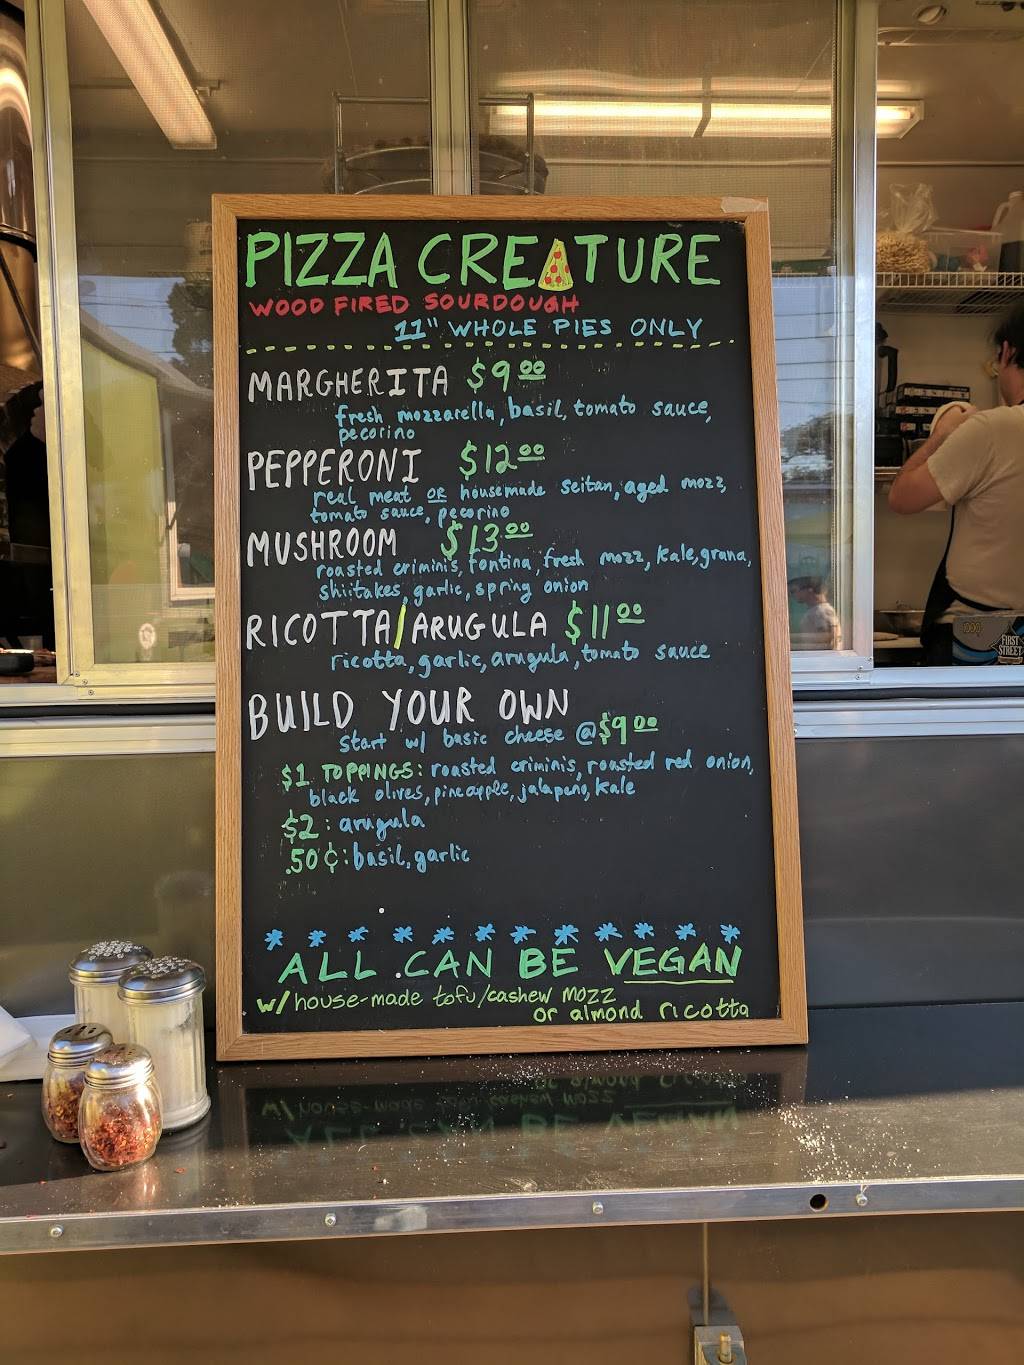 PIZZA CREATURE
WOOD FIRED SOURDOUGH
11" WHOLE PIES ONLY
MARGHERITA $9.00
fresh mozzarella, basil, tomato sauce,
pecorino
PEPPERONI $12.00
real meat OR housemade seitan, aged mozz,
tomato sauce, pecorino
MUSHROOM $13.00
roasted criminis, fontina, fresh mozz, kale, grana,
shiitakes, garlic, spring onion
RICOTTA/ARUGULA $11.00
ricotta, garlic, arugula, tomato sauce
BUILD YOUR OWN
start w/ basic cheese @ $9.00
$1 TOPPINGS: roasted criminis, roasted red onion,
black olives, pineapple, jalapeno, kale
$2: arugula
.50¢: basil, garlic
ALL CAN BE VEGAN
w/ house-made tofu/cashew mozz
or almond ricotta
FIRST
STREET